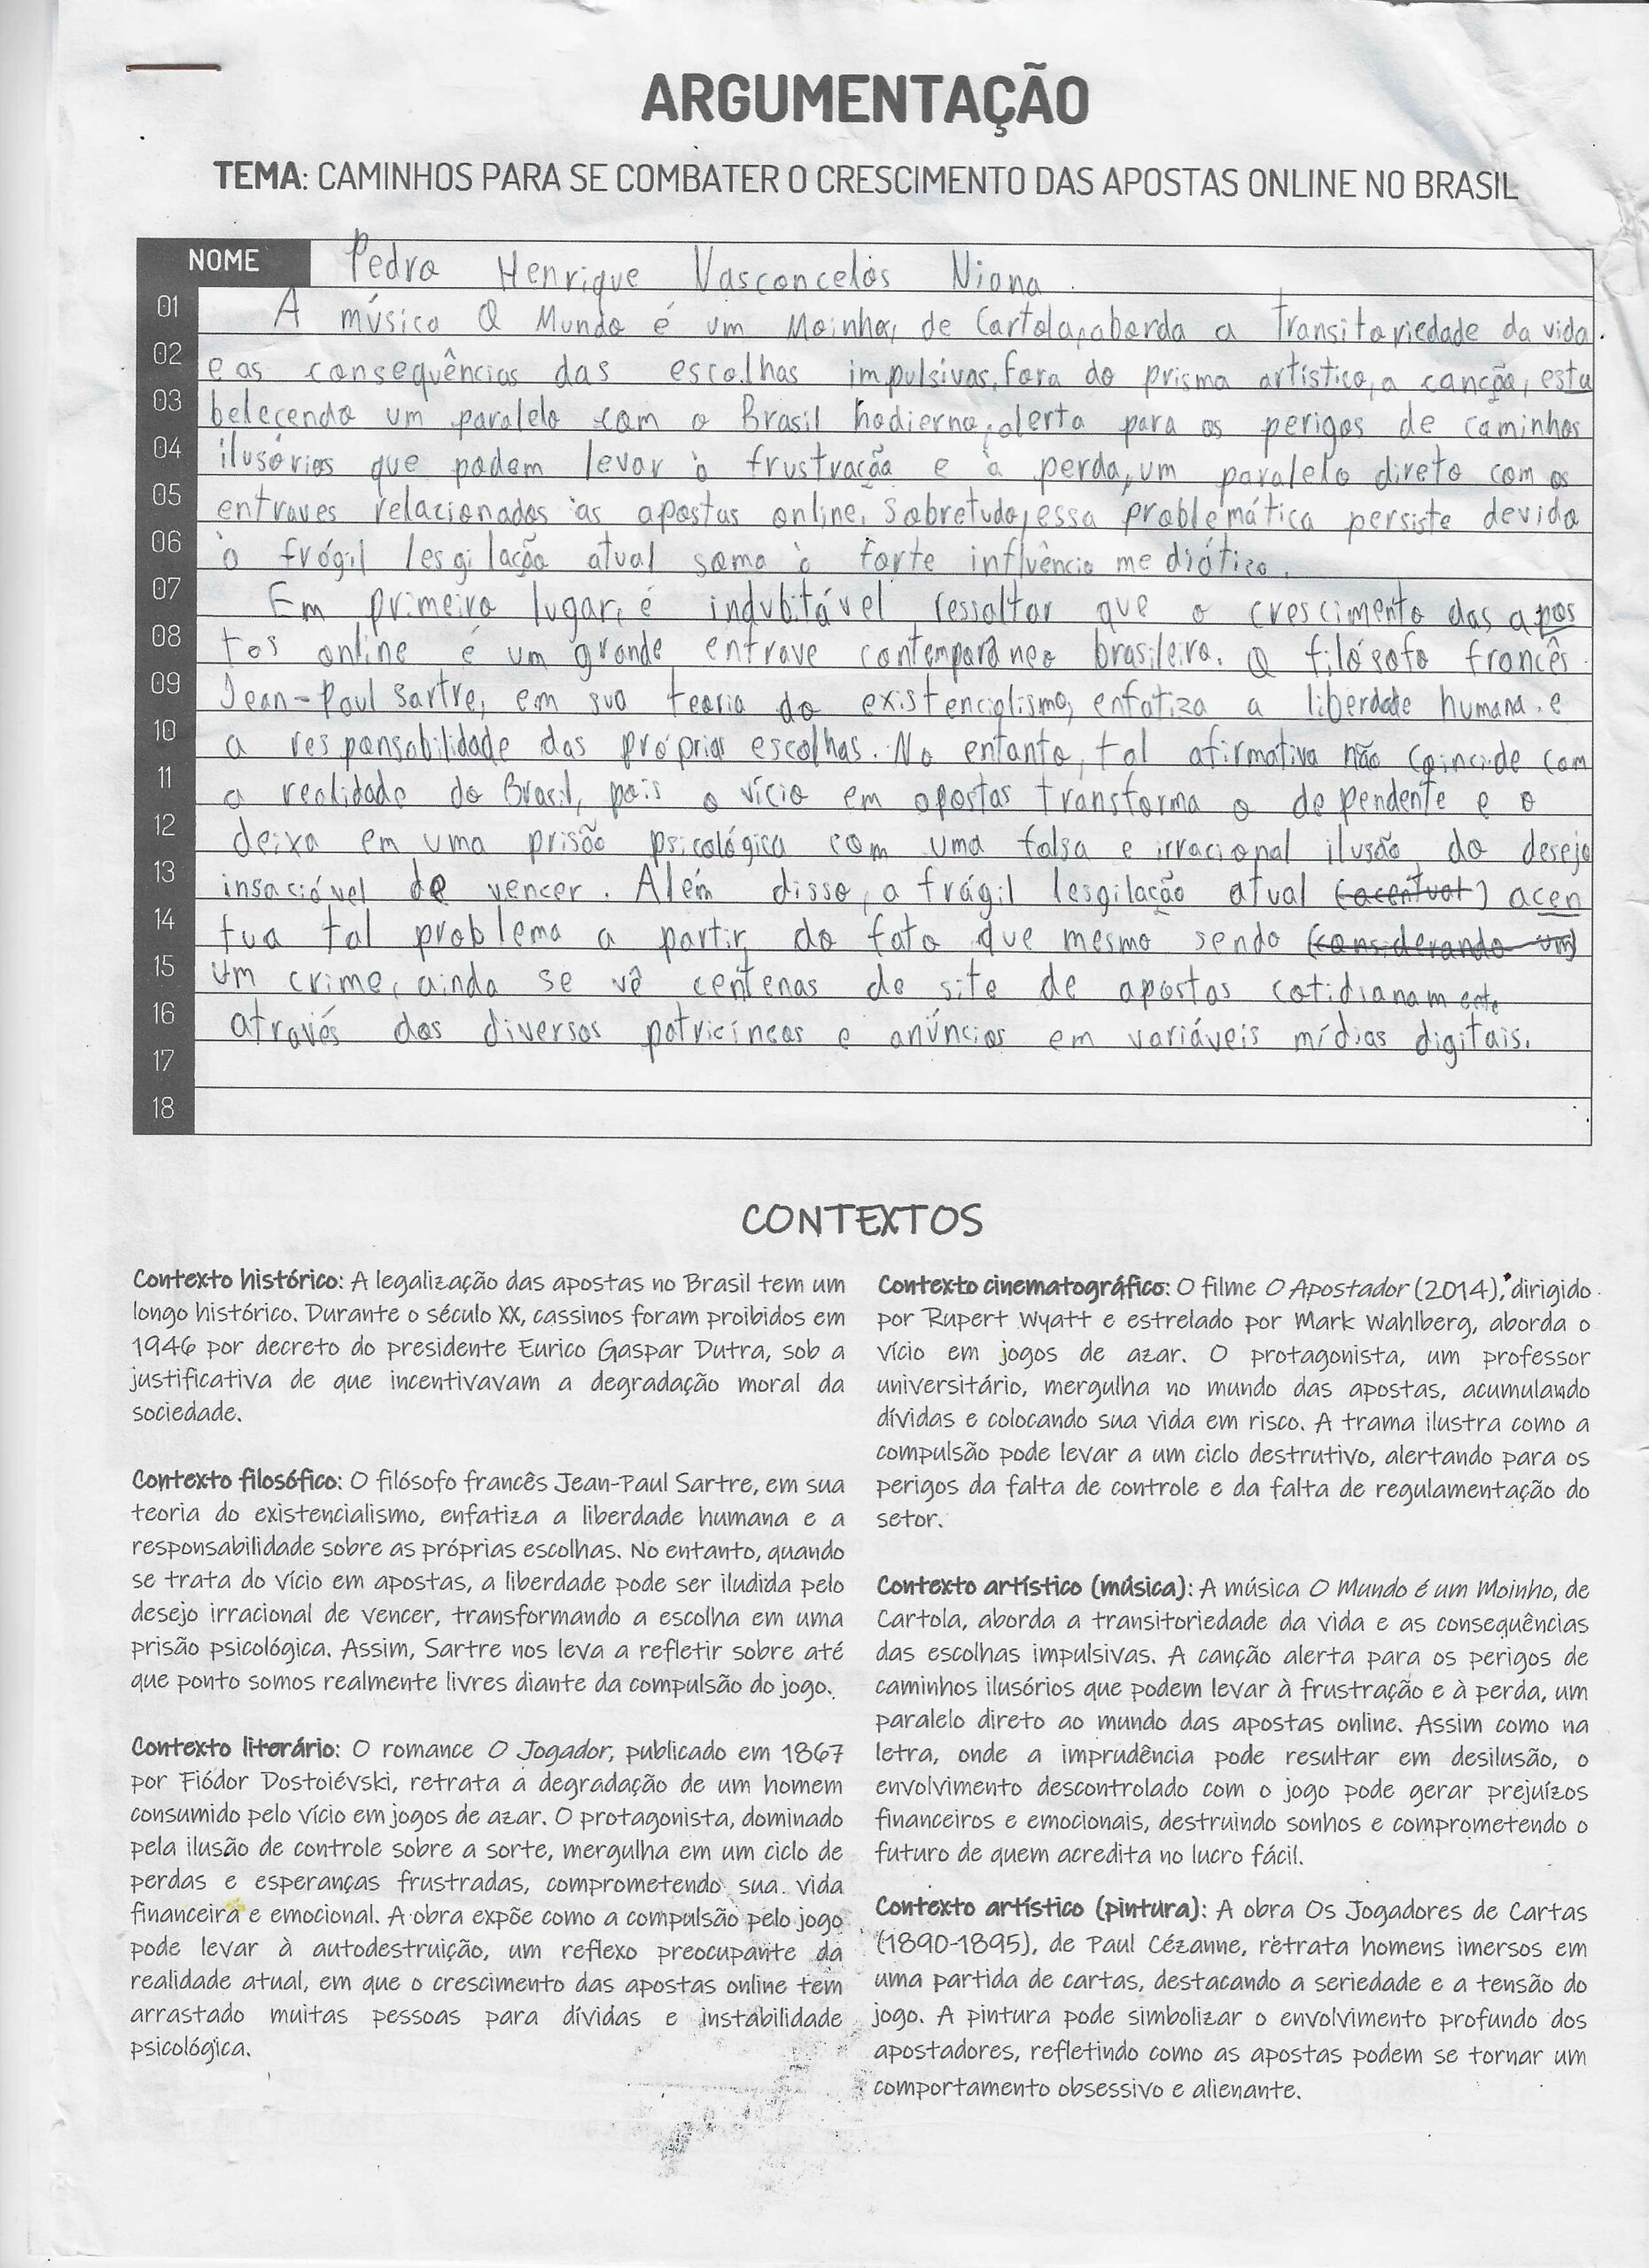 ARGUMENTAÇÃO
TEMA: CAMINHOS PARA SE COMBATER O CRESCIMENTO DAS APOSTAS ONLINE NO BRASIL
NOME Pedro Henrique Vasconcelos Viana
01 A música O Mundo é um Moinho, de Cartola, aborda a transitoriedade da vida
02 e as consequências das escolhas impulsivas. Fora do prisma artístico, a canção, esta
03 belecendo um paralelo com o Brasil hodierno, alerta para os perigos de caminhos
04 ilusórios que podem levar à frustração e à perda, um paralelo direto com os
05 entraves relacionados às apostas online. Sobretudo, essa problemática persiste devido
06 à frágil lesgilação atual somo à forte influência mediática.
07 Em primeiro lugar, é indubitável ressaltar que o crescimento das apos
08 tas online é um grande entrave contemporâneo brasileiro. O filósofo francês
09 Jean-Paul Sartre, em sua teoria do existencialismo, enfatiza a liberdade humana e
10 a responsabilidade das próprias escolhas. No entanto, tal afirmativa não coincide com
11 a realidade do Brasil, pois o vício em apostas transforma o dependente e o
12 deixa em uma prisão psicológica com uma falsa e irracional ilusão do desejo
13 insaciável de vencer. Além disso, a frágil lesgilação atual (acentual) acen
14 tua tal problema a partir do fato que mesmo sendo (considerando um)
15 um crime, ainda se vê centenas de site de apostas cotidianamente
16 através dos diversos patricíneos e anúncios em variáveis mídias digitais.
17
18
CONTEXTOS
Contexto histórico: A legalização das apostas no Brasil tem um
longo histórico. Durante o século XX, cassinos foram proibidos em
1946 por decreto do presidente Eurico Gaspar Dutra, sob a
justificativa de que incentivavam a degradação moral da
sociedade.
Contexto filosófico: O filósofo francês Jean-Paul Sartre, em sua
teoria do existencialismo, enfatiza a liberdade humana e a
responsabilidade sobre as próprias escolhas. No entanto, quando
se trata do vício em apostas, a liberdade pode ser iludida pelo
desejo irracional de vencer, transformando a escolha em uma
prisão psicológica. Assim, Sartre nos leva a refletir sobre até
que ponto somos realmente livres diante da compulsão do jogo.
Contexto literário: O romance O Jogador, publicado em 1867
por Fiódor Dostoiévski, retrata a degradação de um homem
consumido pelo vício em jogos de azar. O protagonista, dominado
pela ilusão de controle sobre a sorte, mergulha em um ciclo de
perdas e esperanças frustradas, comprometendo sua vida
financeira e emocional. A obra expõe como a compulsão pelo jogo
pode levar à autodestruição, um reflexo preocupante da
realidade atual, em que o crescimento das apostas online tem
arrastado muitas pessoas para dívidas e instabilidade
psicológica.
Contexto cinematográfico: O filme O Apostador (2014), dirigido
por Rupert Wyatt e estrelado por Mark Wahlberg, aborda o
vício em jogos de azar. O protagonista, um professor
universitário, mergulha no mundo das apostas, acumulando
dívidas e colocando sua vida em risco. A trama ilustra como a
compulsão pode levar a um ciclo destrutivo, alertando para os
perigos da falta de controle e da falta de regulamentação do
setor.
Contexto artístico (música): A música O Mundo é um Moinho, de
Cartola, aborda a transitoriedade da vida e as consequências
das escolhas impulsivas. A canção alerta para os perigos de
caminhos ilusórios que podem levar à frustração e à perda, um
paralelo direto ao mundo das apostas online. Assim como na
letra, onde a imprudência pode resultar em desilusão, o
envolvimento descontrolado com o jogo pode gerar prejuízos
financeiros e emocionais, destruindo sonhos e comprometendo o
futuro de quem acredita no lucro fácil.
Contexto artístico (pintura): A obra Os Jogadores de Cartas
(1890-1895), de Paul Cézanne, retrata homens imersos em
uma partida de cartas, destacando a seriedade e a tensão do
jogo. A pintura pode simbolizar o envolvimento profundo dos
apostadores, refletindo como as apostas podem se tornar um
comportamento obsessivo e alienante.